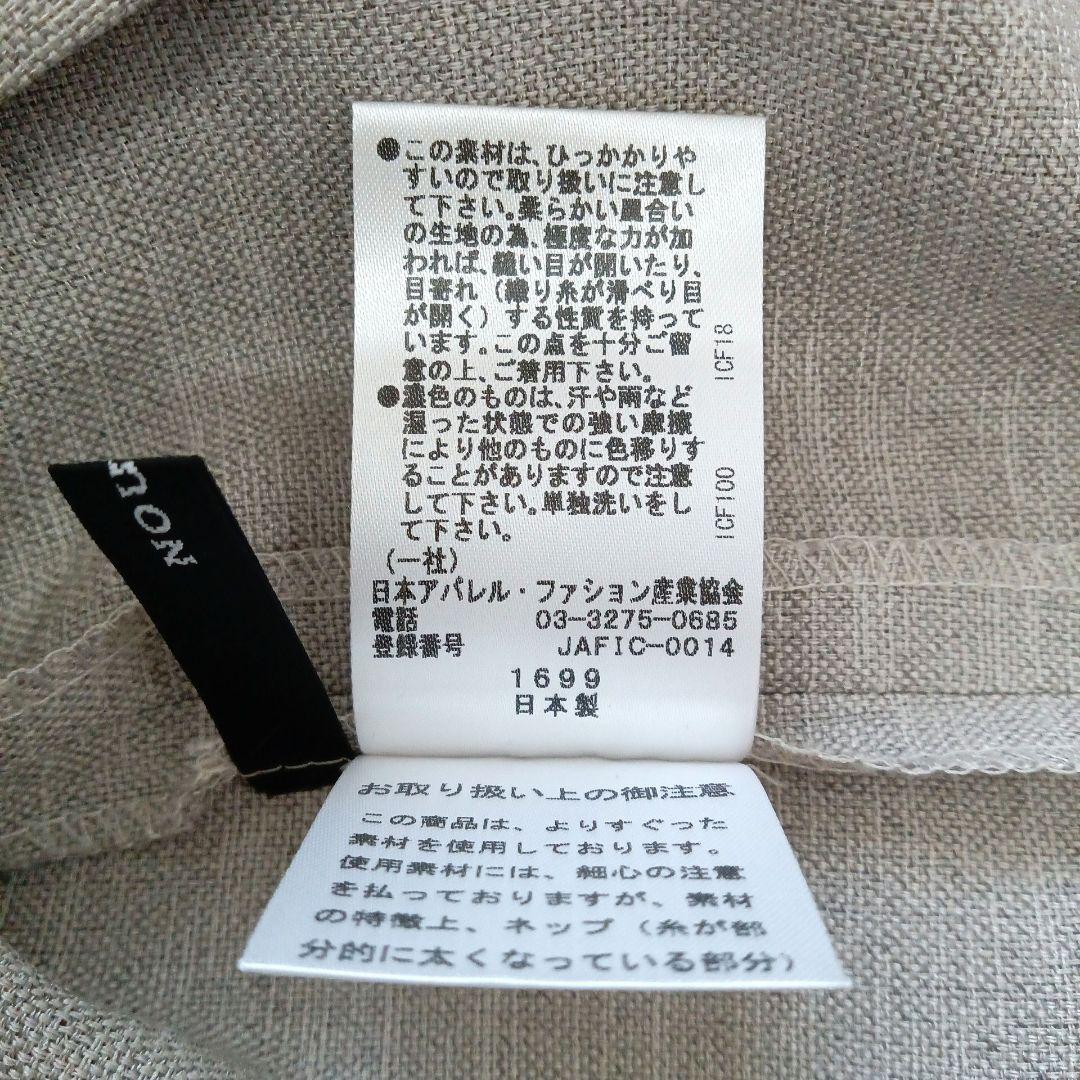 ●この素材は、ひっかかりや
すいので取り扱いに注意し
て下さい。柔らかい風合い
の生地の為、極度な力が加
われば、縫い目が開いたり、
目寄れ（織り糸が滑べり目
が開く）する性質を持って
います。この点を十分ご留
意の上、ご着用下さい。
●濃色のものは、汗や雨など
湿った状態での強い摩擦
により他のものに色移りす
ることがありますので注意
して下さい。単独洗いをし
て下さい。
（一社）
日本アパレル・ファション産業協会
電話 03-3275-0685
登録番号 JAFIC-0014
1699
日本製
ICF18
ICF100
お取り扱い上の御注意
この商品は、よりすぐった
素材を使用しております。
使用素材には、細心の注意
を払っておりますが、素材
の特徴上、ネップ（糸が部
分的に太くなっている部分）